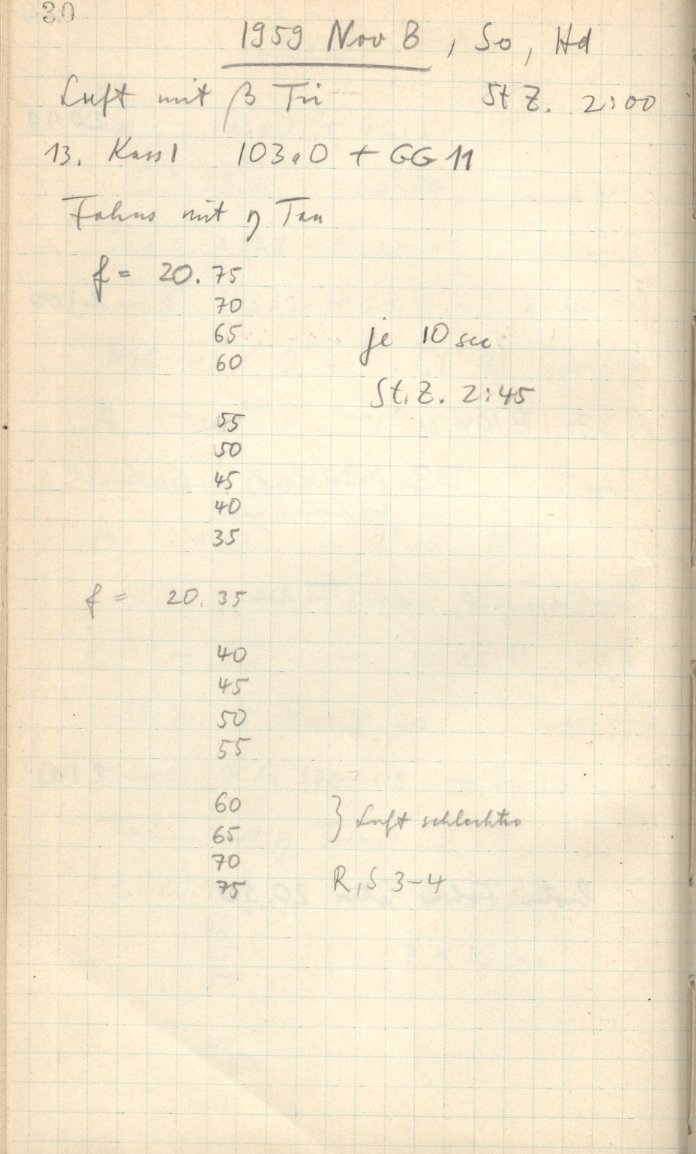 30
1959 Nov 8, So, Hd
Luft mit β Tri St Z. 2:00
13. Kass1 103a0 + GG 11
Fokus mit η Tau
f = 20.75
70
65
60
je 10 sec
St. Z. 2:45
55
50
45
40
35
f = 20.35
40
45
50
55
60
65
} Luft schlechter
70
75 R, S 3-4